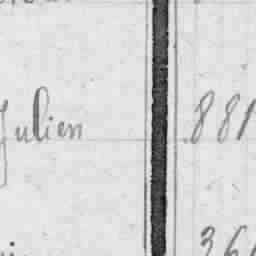 Julien 881
36